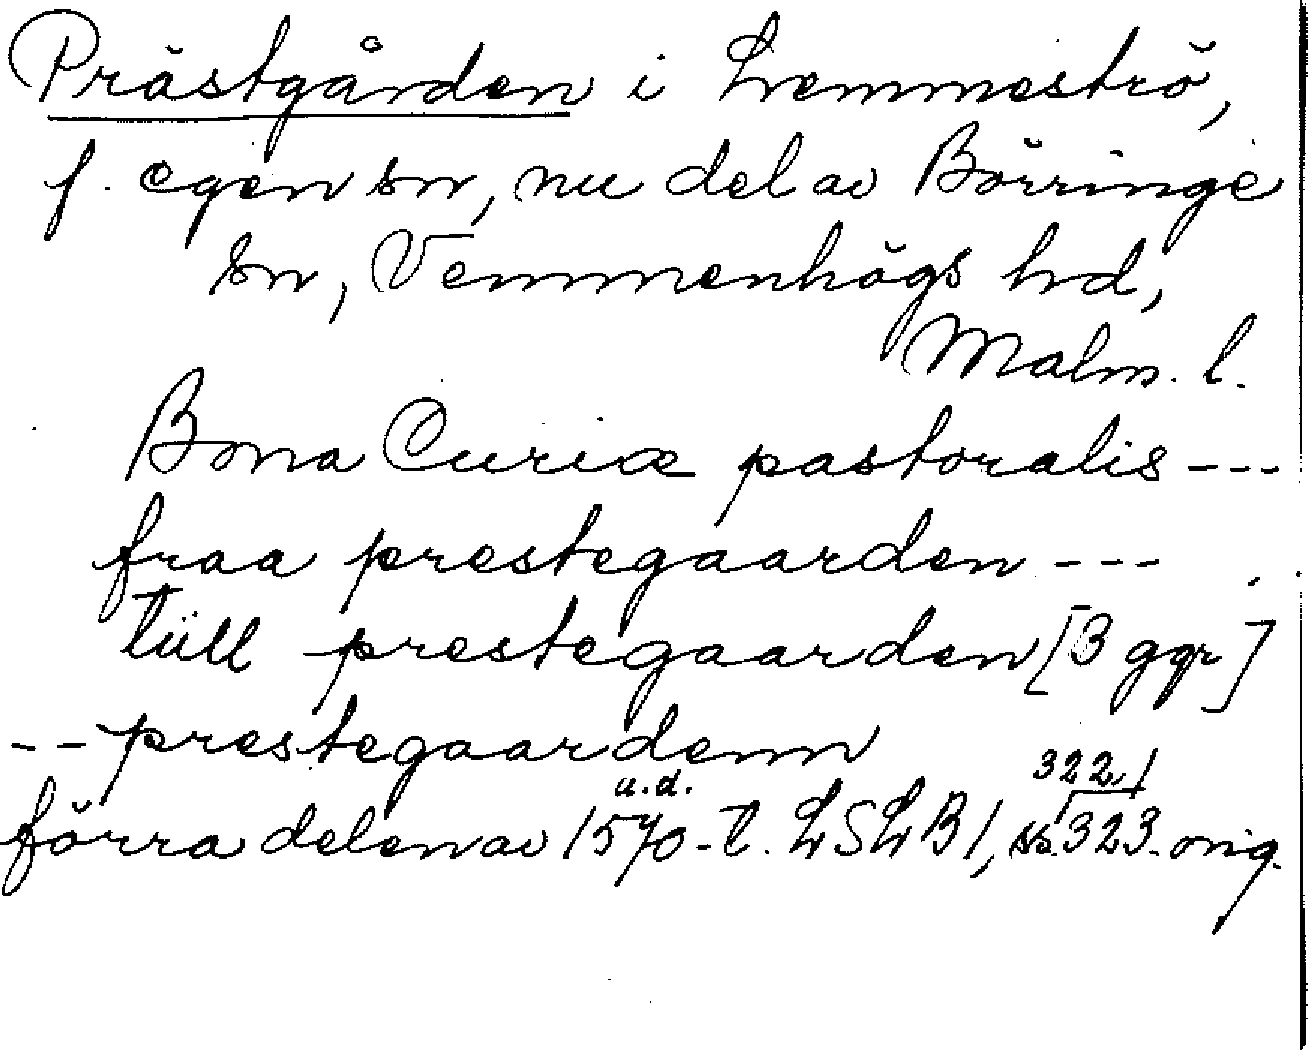 Prästgården i Lemmeströ,
f. egen sn, nu del av Börringe
sn, Vemmenhögs hd,
Malm. l.
Bona Curiæ pastoralis ---
fraa prestegaarden ---
tüll prestegaarden [3 ggr]
-- prestegaardenn
u.d. 322,
förra delen av 1570-t. LSLB 1, ss. 323. orig.